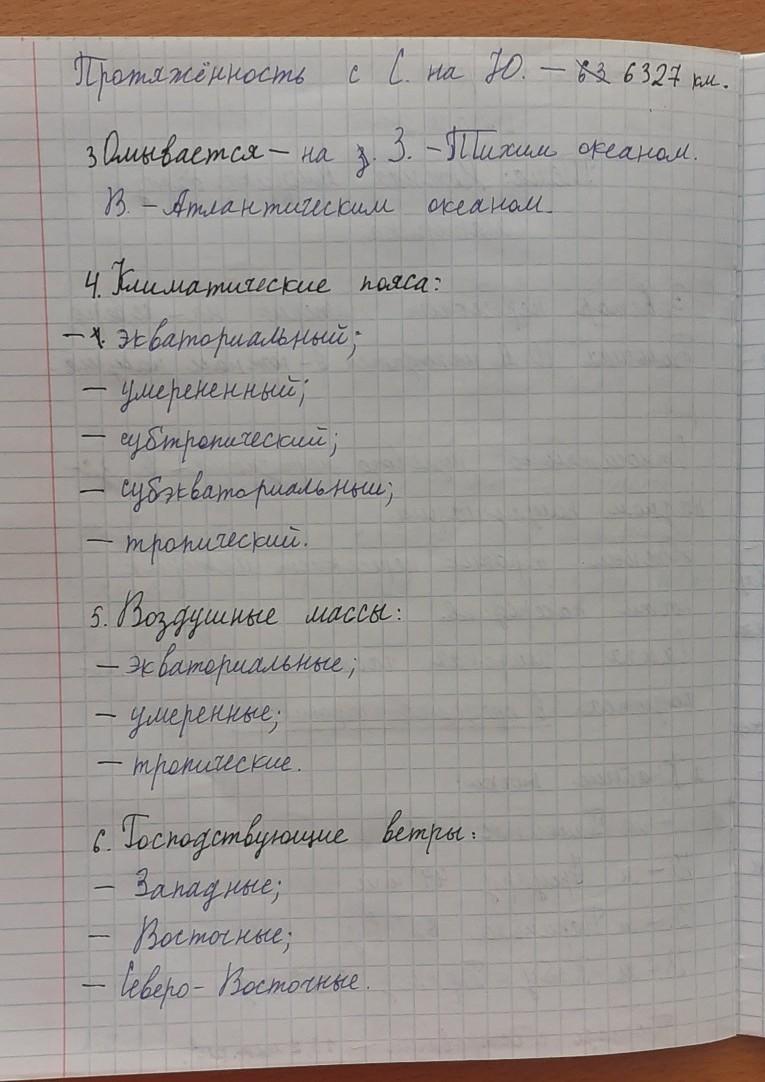 Протяжённость с С. на Ю. – 6327 км.
3 Омывается – на З. – Тихим океаном.
В. – Атлантическим океаном.
4. Климатические пояса:
– экваториальный;
– умерененный;
– субтропический;
– субэкваториальный;
– тропический.
5. Воздушные массы:
– экваториальные;
– умеренные;
– тропические.
6. Господствующие ветры:
– Западные;
– Восточные;
– Северо-Восточные.